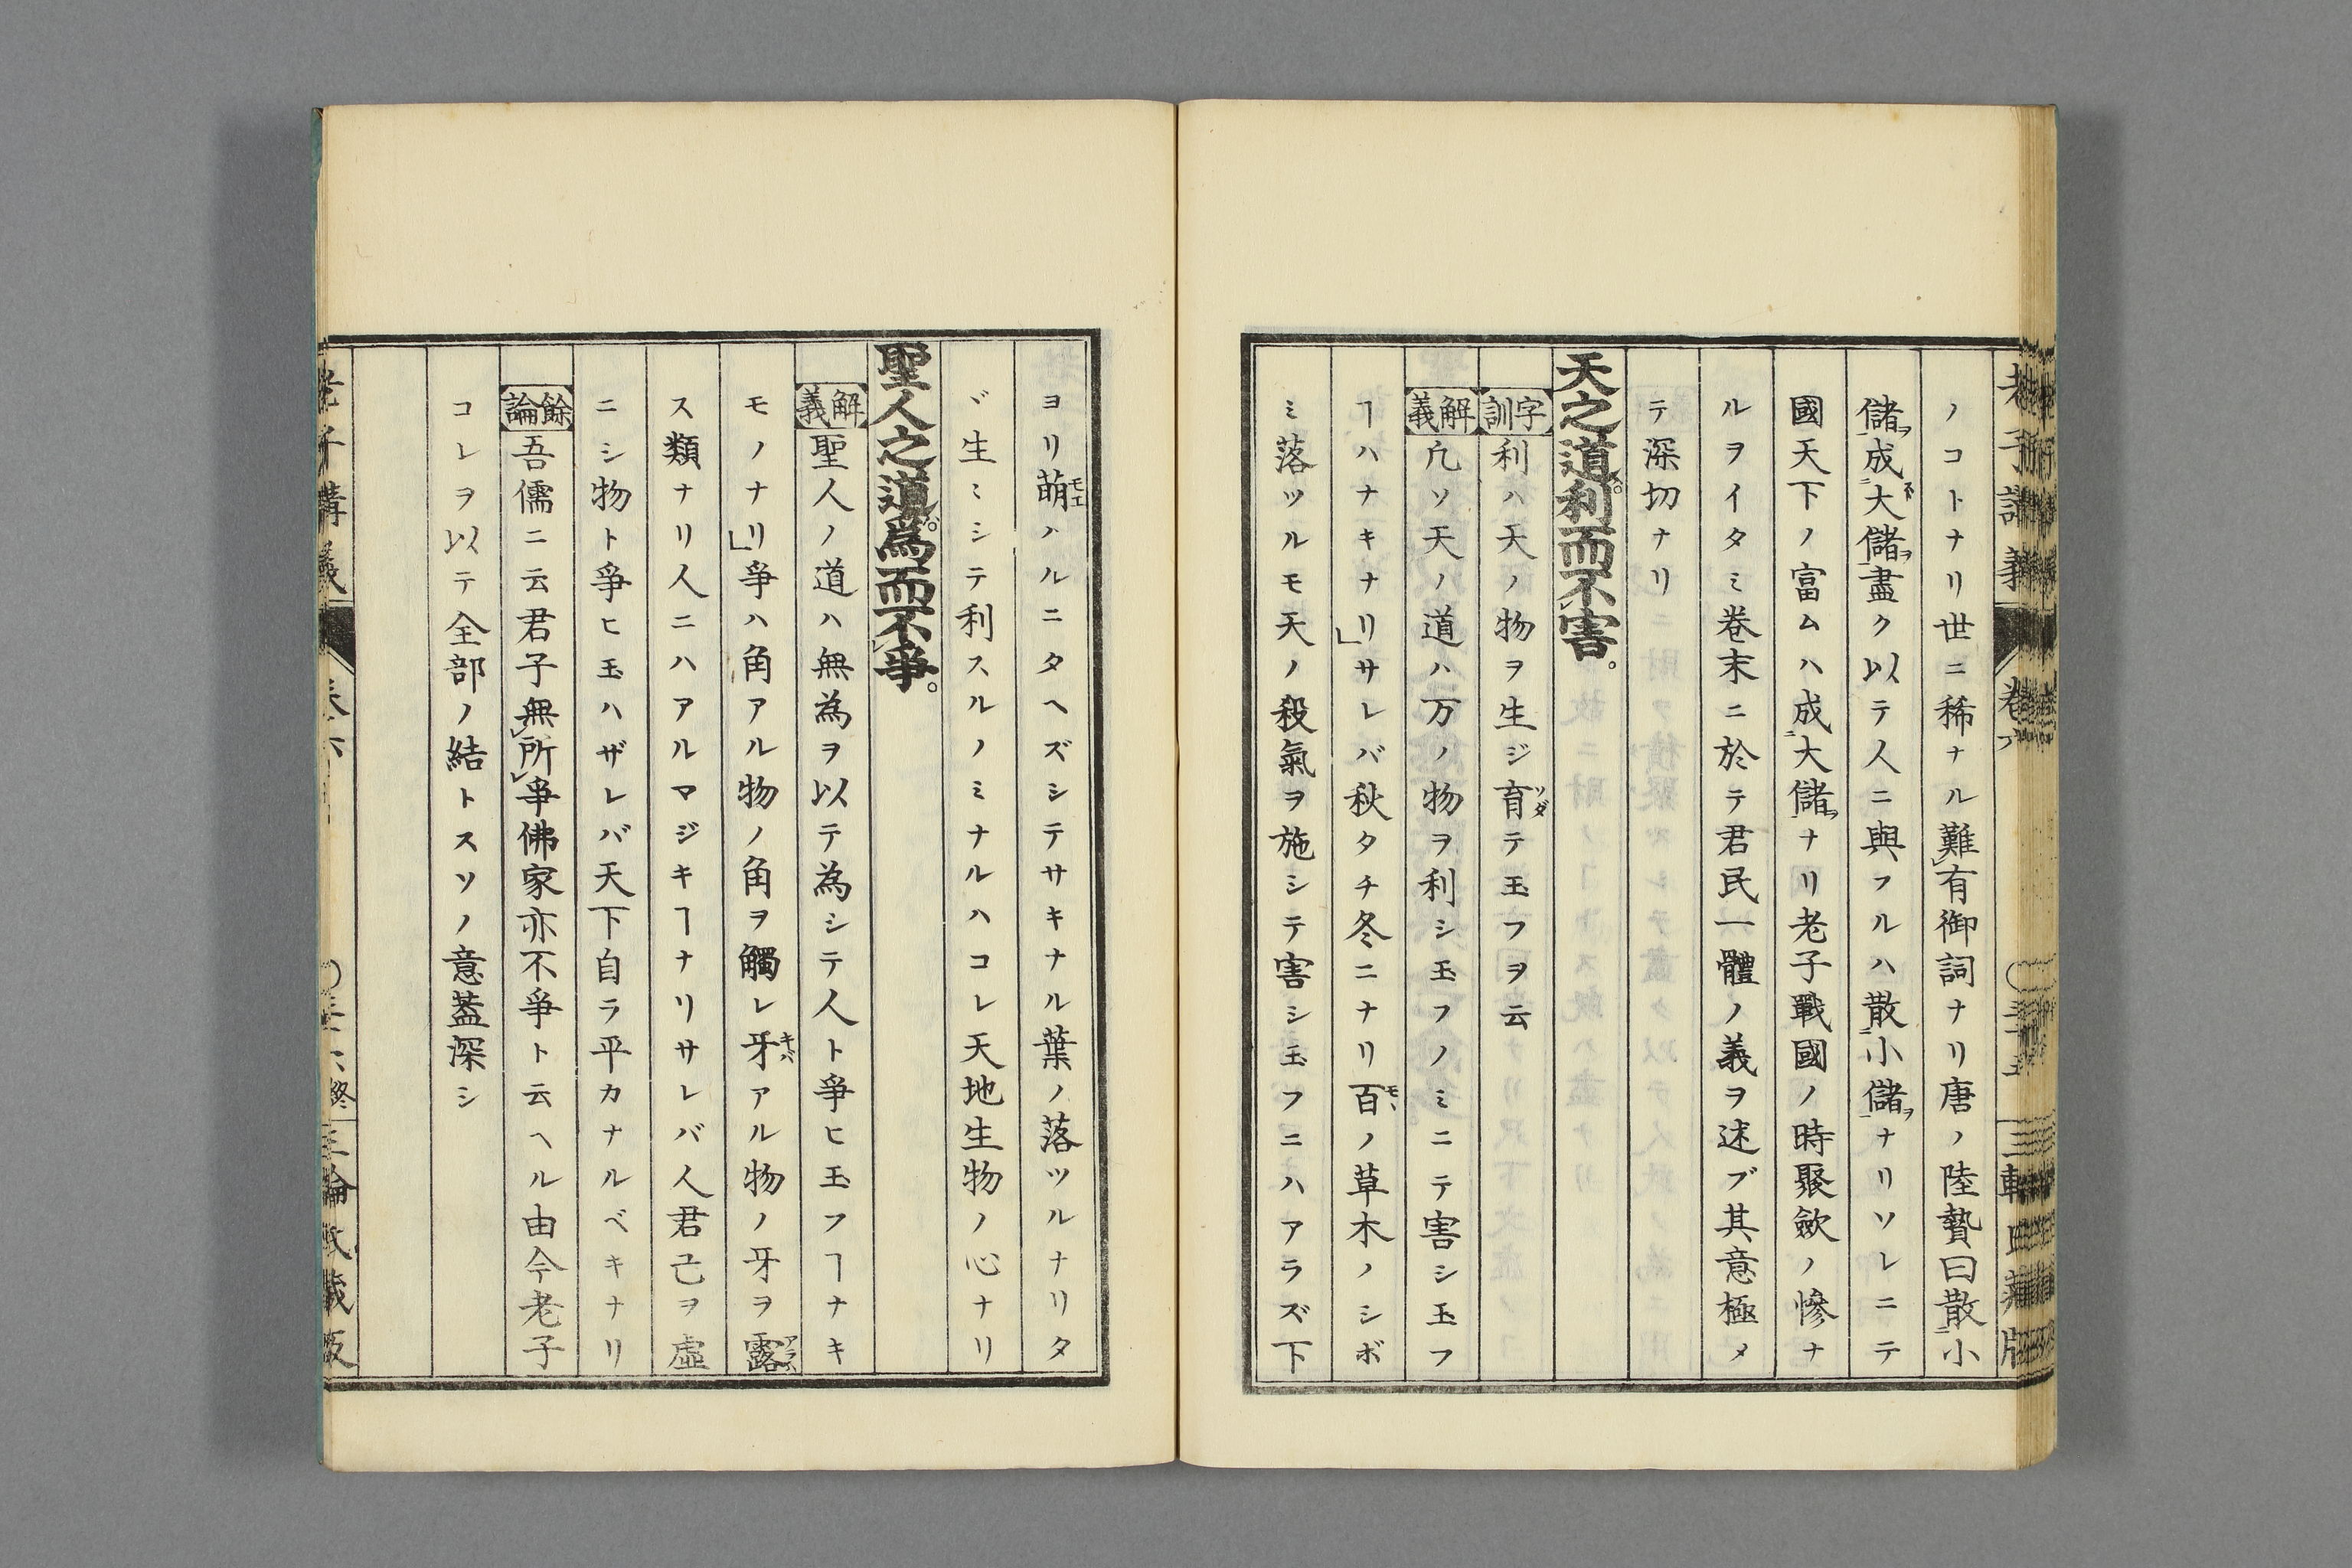 ノコトナリ世ニ稀ナル難有御詞ナリ唐ノ陸贄曰散小
儲ヲ成大儲ヲ盡ク以テ人ニ與フルハ散小儲ヲナリソレニテ
國天下ノ富ムハ成大儲ヲナリ老子戰國ノ時聚斂ノ慘ナ
ルヲイタミ卷末ニ於テ君民一體ノ義ヲ述ブ其意極メ
テ深切ナリ
天之道。利而不害。
字訓 利ハ天ノ物ヲ生ジ育テ玉フヲ云
解義 凢ソ天ノ道ハ万ノ物ヲ利シ玉フノミニテ害シ玉フ
ヿハナキナリ」サレバ秋タチ冬ニナリ百ノ草木ノシボ
ミ落ツルモ天ノ殺氣ヲ施シテ害シ玉フニハアラズ下
ヨリ萌ハルニタヘズシテサキナル葉ノ落ツルナリタ
ヾ生〻シテ利スルノミナルハコレ天地生物ノ心ナリ
聖人之道。爲而不爭。
解義 聖人ノ道ハ無為ヲ以テ為シテ人ト爭ヒ玉フヿナキ
モノナリ」爭ハ角アル物ノ角ヲ觸レ牙アル物ノ牙ヲ露
ス類ナリ人ニハアルマジキヿナリサレバ人君己ヲ虛
ニシ物ト爭ヒ玉ハザレバ天下自ラ平カナルベキナリ
餘論 吾儒ニ云君子無所爭佛家亦不爭ト云ヘル由今老子
コレヲ以テ全部ノ結トスソノ意葢深シ
老子講義